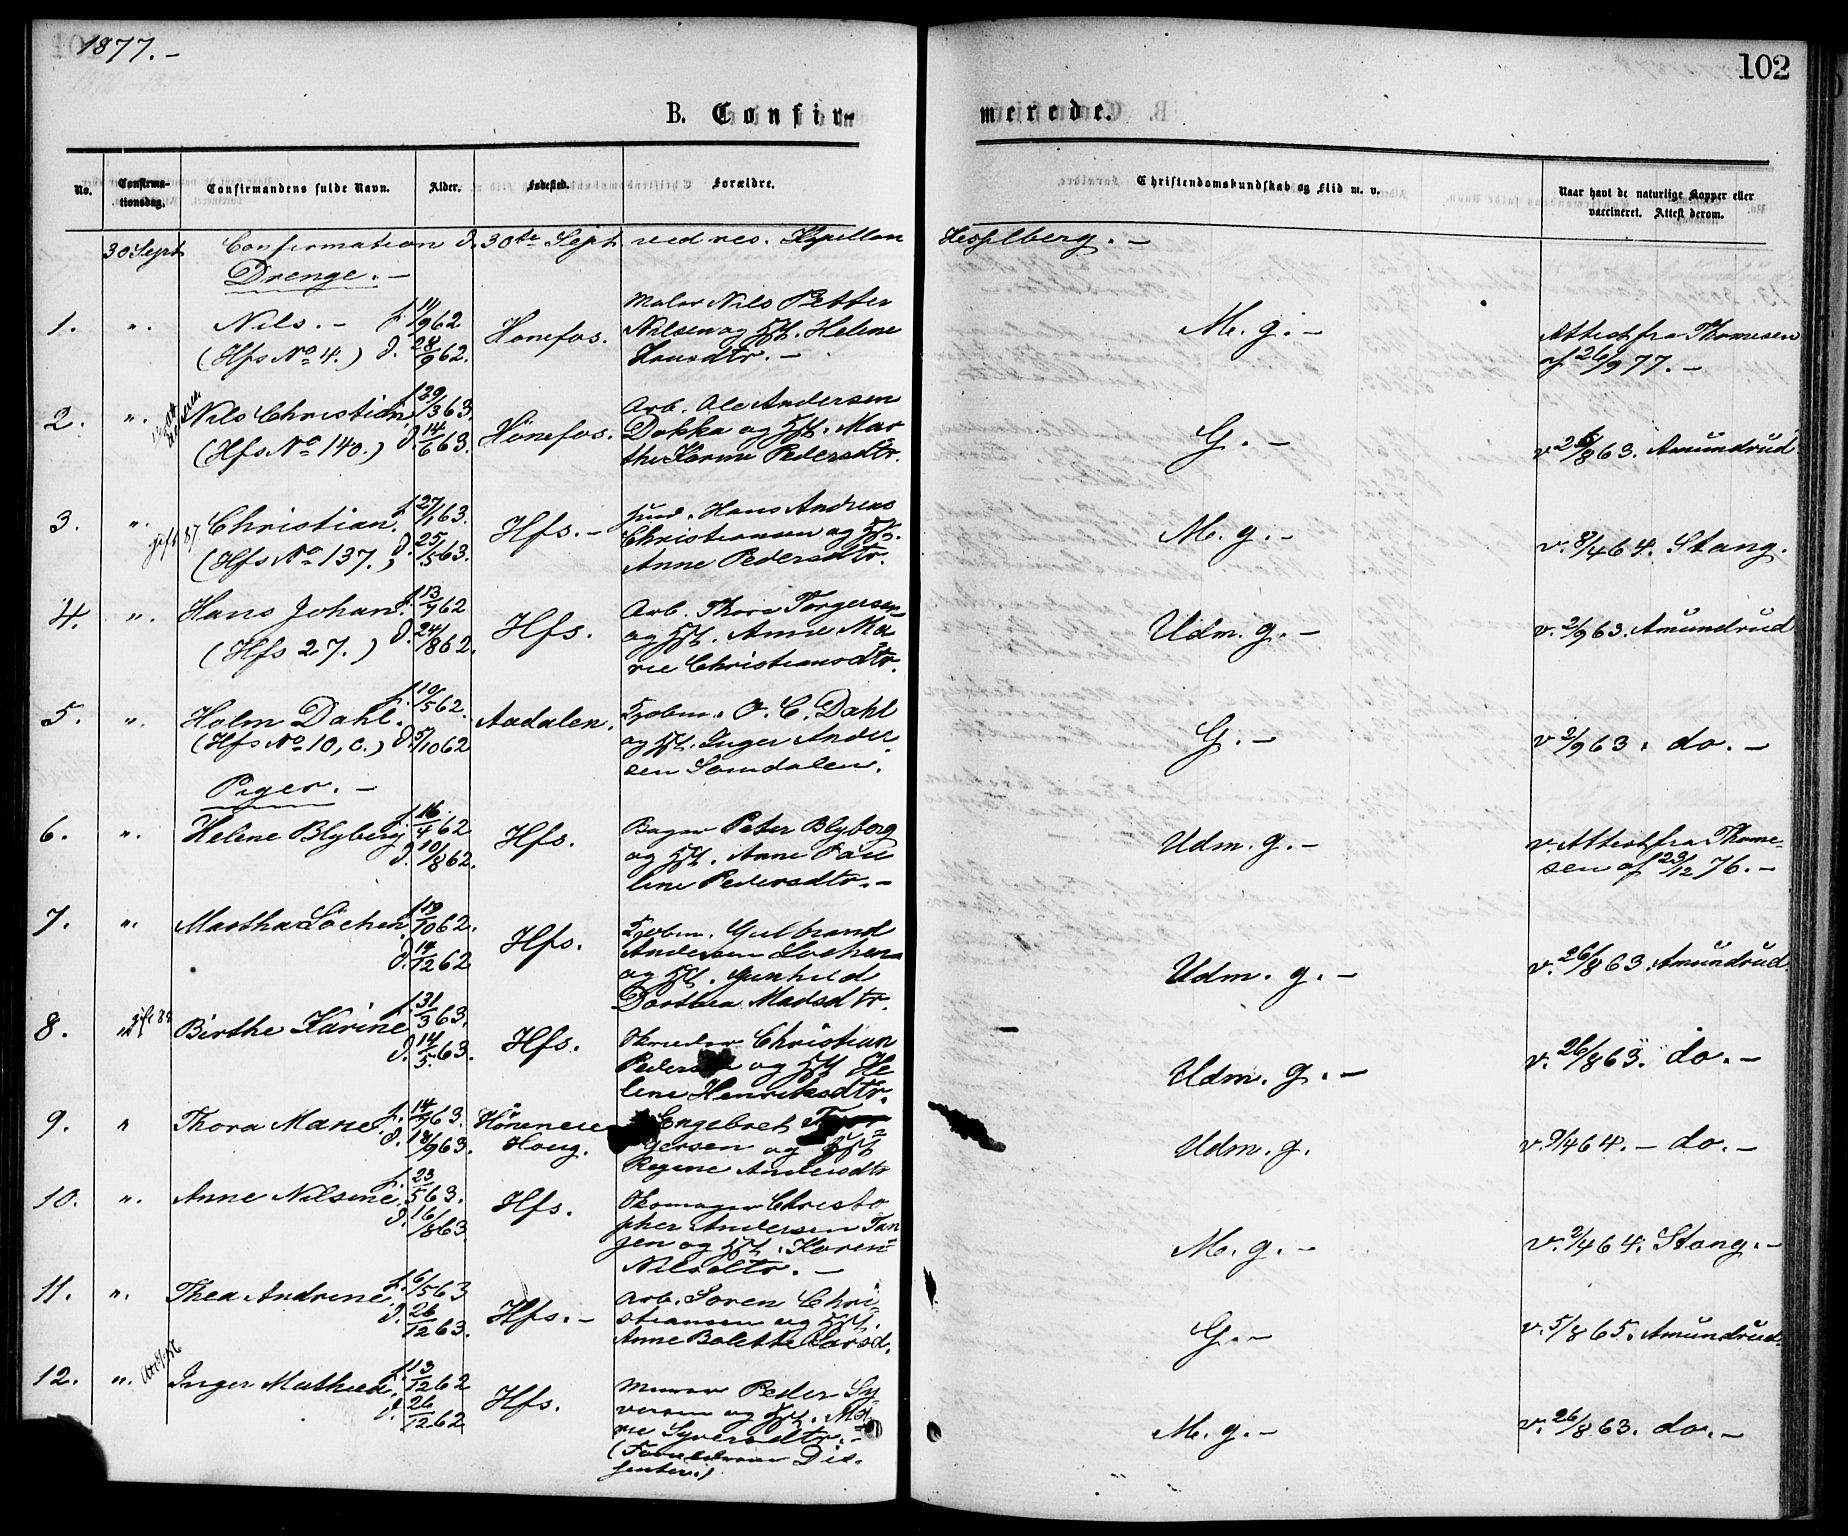 1877. –
102
B. Confir-
merede.
No.
Confirma-
tionsdag.
Confirmandens fulde Navn.
Alder.
Fødested.
Forældre.
Christendomskundskab og Flid m. v.
Naar havt de naturlige Kopper eller
vaccineret. Attest derom.
30 Sept Confirmation d. 30te Sept ved res. Kapellan Hesselberg. –
Drenge. –
1. ". Nils. – f. 14/9 62
(Hfs No 4.) d. 28/9 62.
Hønefos.
Maler Nils Petter
Nilsen og Hst. Helene
Hansdtr. –
M. g. –
Attest fra Thomesen
af 26/9 77. –
2. ". Nils Christian f. 29/3 63
(Hfs No 140.) d. 14/6 63.
Hönefos.
Arb. Ole Andersen
Dokka og Hst. Mar
the Karine Pedersdtr.
G. –
v 26/8 63. Amundrud
3. ". gift 87 Christian. f. 27/1 63.
(Hfs No 137.) d. 25/5 63.
Hfs. –
Hans Andreas
Christiansen og Hst.
Anne Pedersdtr.
M. g. –
v. 8/4 64. Stang.
4. ". Hans Johan. f. 13/7 62
(Hfs 27.) d. 24/8 62.
Hfs.
Arb. Thore Torgersen
og Hst. Anne Ma
rie Christiansdtr.
Udm. g. –
v. 2/9 63. Amundrud
5. ". Holm Dahl. f. 10/5 62.
(Hfs No 10, c.) d. 5/10 62
Aadalen.
Tjobm. O. C. Dahl
og Hst. Inger Ander
sen Somdalen.
G. –
v 2/9 63. do. –
Piger. –
6. ". Helene Blyberg f. 16/4 62
d. 10/8 62.
Hfs.
Bager Peter Blyberg
og Hst. Anne Pau
line Pedersdtr. –
Udm. g. –
v. Attest fra Thome-
sen af 29/12 76. –
7. ". Martha Löchen f. 19/10 62.
d. 14/12 62
Hfs.
Tjobm. Gulbrand
Andersen Lochen
og Hst. Gunhild
Dorthea Madsdtr.
Udm. g. –
v. 26/8 63. Amundrud
8. gift 83 Birthe Karine f. 31/3 63.
d. 14/5 63.
Hfs.
Skræder Christian
Pedersen og Hst He
lene Henriksdtr.
Udm. g. –
v. 26/8 63. do. –
9. " Thora Marie f. 14/7 63.
d. 18/9 63.
Hönenese
Houg.
Engebret Tor-
gersen og Hst
Regine Andersdtr
Udm. g.
v. 9/4 64. – do. –
10. ". Anne Nilsine f. 23/5 63.
d. 16/8 63.
Hfs.
Skomager Christo
pher Andersen Tan
gen og Hst. Karen
Nilsdtr. –
M. g. –
v. 2/4 64. Stang. –
11. ". Thea Andrine f. 6/5 63
d. 26/12 63.
Hfs. –
Arb. Soren Chri-
stiansen og Hst.
Anne Bolette Larsd.
G. –
v. 5/8 65. Amundrud.
12. ". Inger Mathea f. 13/12 62
d. 26/12 62
Hfs.
Murer Peder Sy
versen og Hst. Ma
rie Syversdtr. –
(Forældrene Dis-
senter.)
M. g. –
v. 26/8 63. do. –